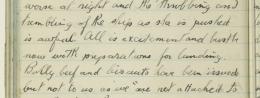 worse at night and the throbbing and
trembling of the ship as she is pushed
is awful. All is excitement and bustle
now with preparations for landing.
Bully beef and biscuits have been issued
but not to us as we "are not attached to